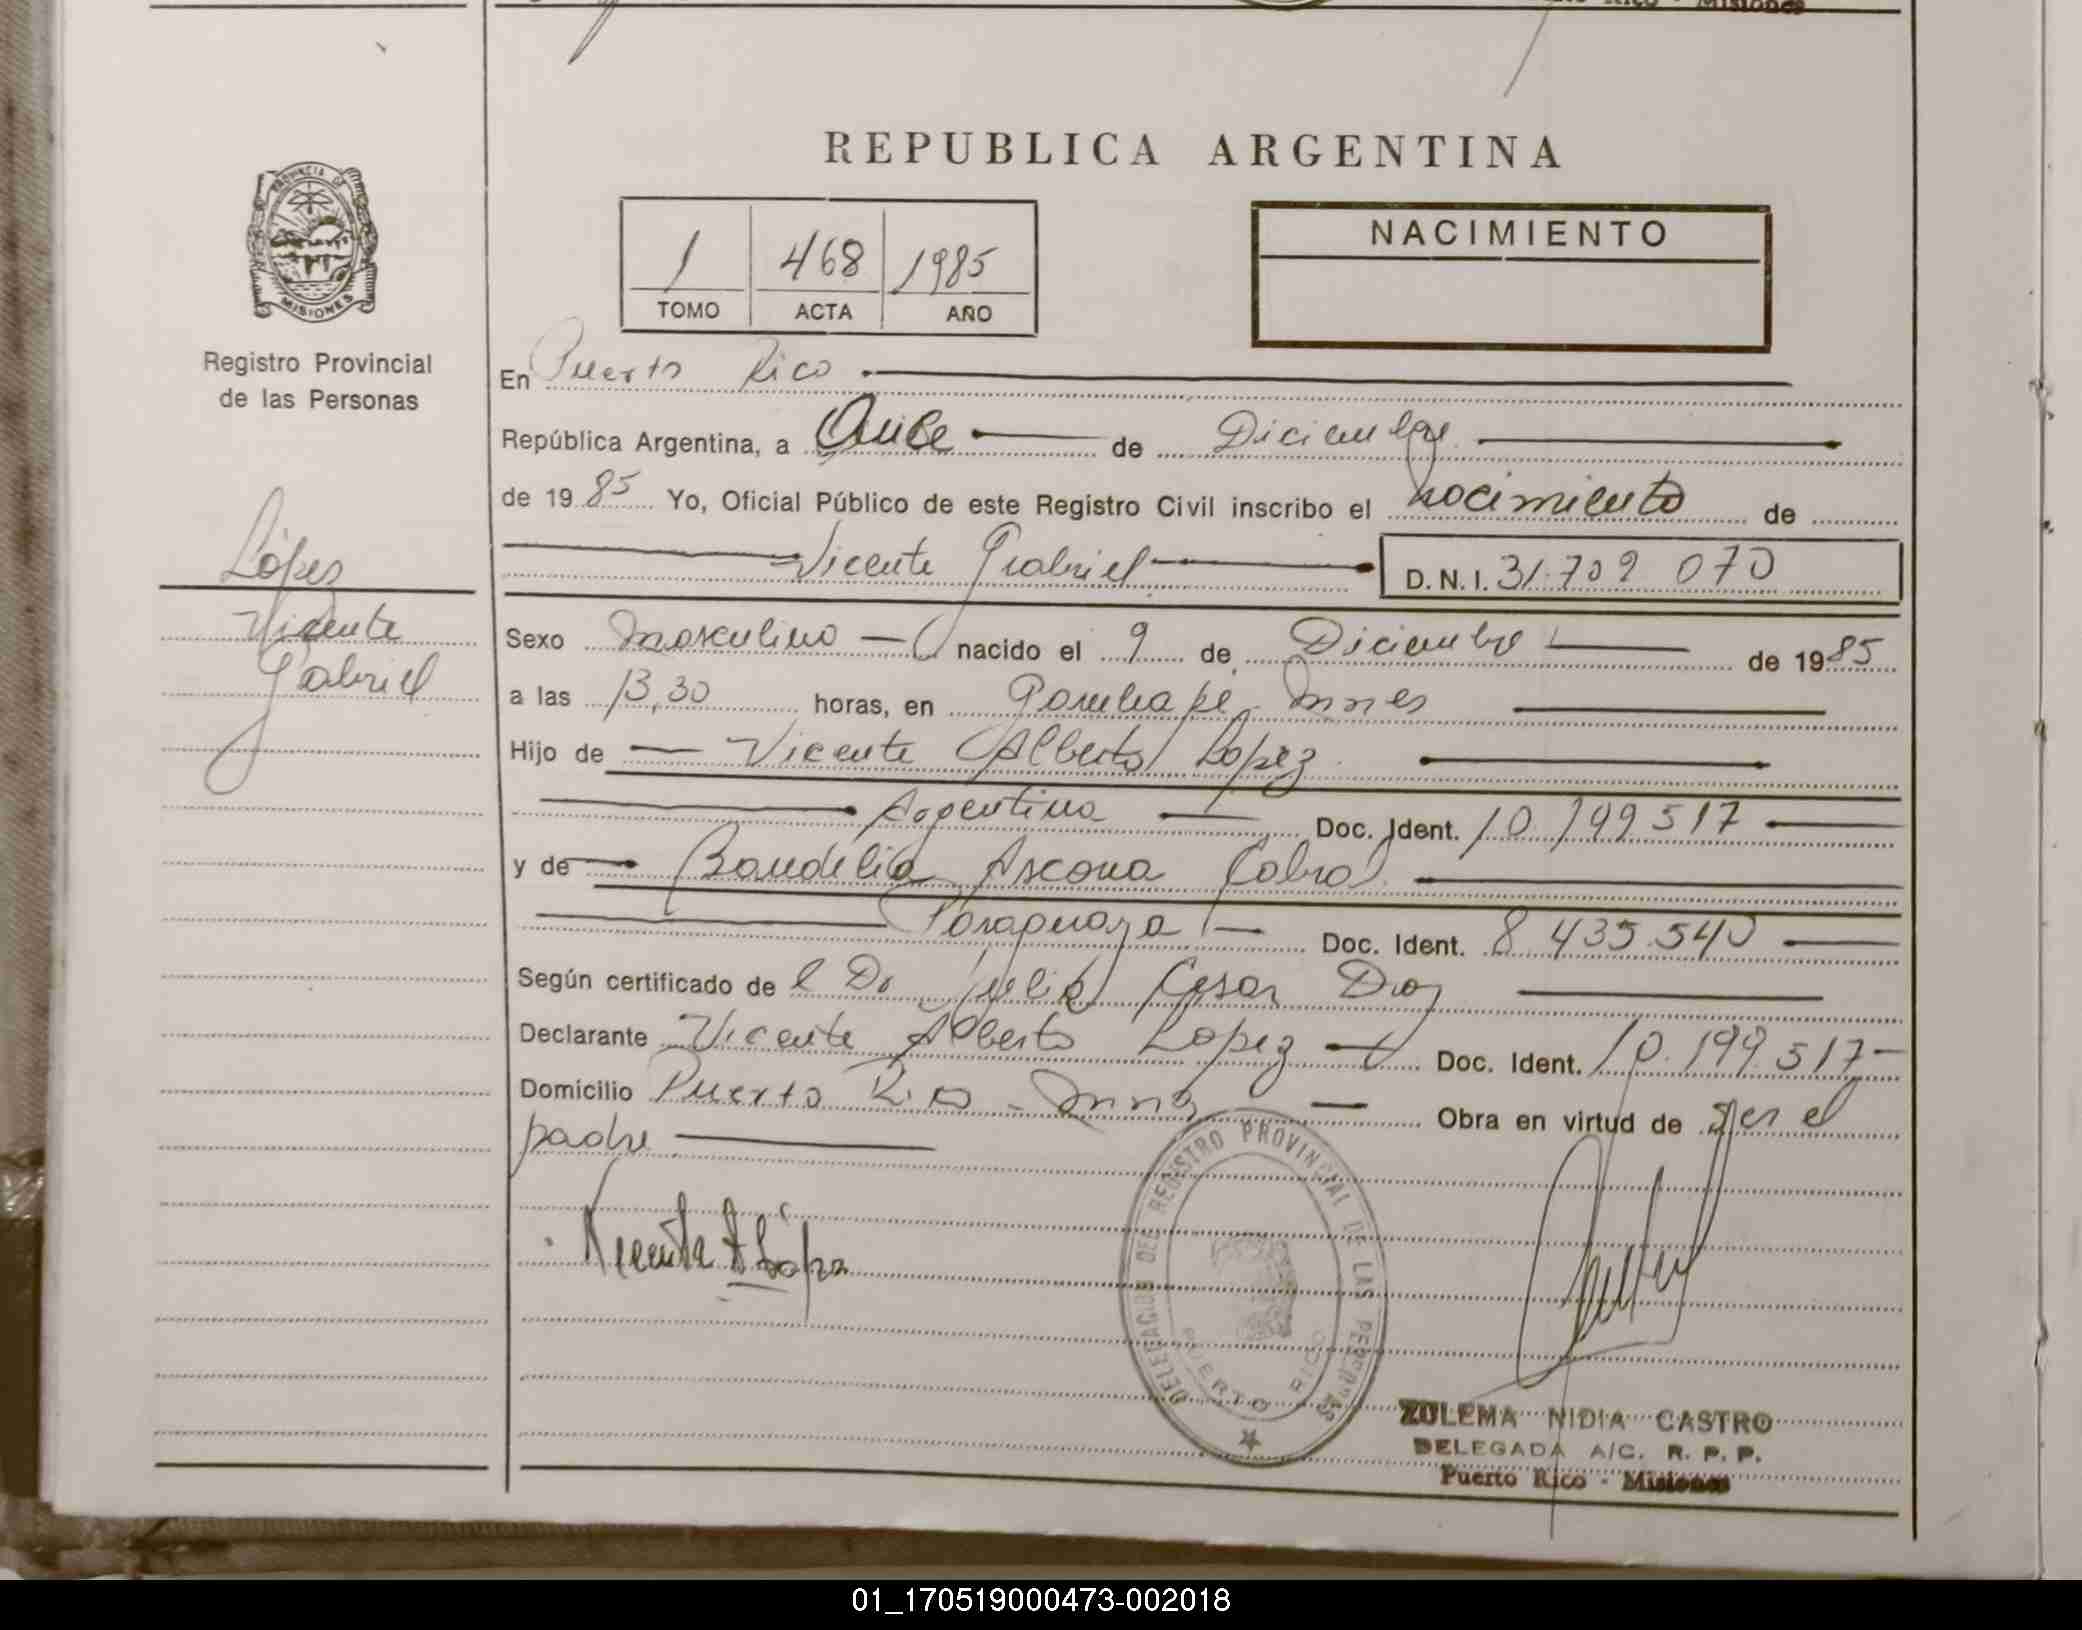 Rico - Misiones
REPUBLICA ARGENTINA
PROVINCIA DE
MISIONES
Registro Provincial
de las Personas
1 468 1985
TOMO ACTA AÑO
NACIMIENTO
López
Vicente
Gabriel
En Puerto Rico
República Argentina, a Once de Diciembre
de 1985 Yo, Oficial Público de este Registro Civil inscribo el nacimiento de
Vicente Gabriel D.N.I. 31.709 070
Sexo masculino nacido el 9 de Diciembre de 1985
a las 13,30 horas, en Garuhapé Mnes
Hijo de Vicente Alberto López
Argentino Doc. Ident. 10.199517
y de Baudelia Ascona Cabral
Paraguaya Doc. Ident. 8.435.540
Según certificado de l Dr Julio Cesar
Declarante Vicente Alberto Lopez Doc. Ident. 10.199.517
Domicilio Puerto Rico - Mnes Obra en virtud de ser el
padre
Vicente A López
DELEGACION DEL REGISTRO PROVINCIAL DE LAS PERSONAS
PUERTO RICO
ZULEMA NIDIA CASTRO
DELEGADA A/C. R. P. P.
Puerto Rico - Misiones
01_170519000473-002018